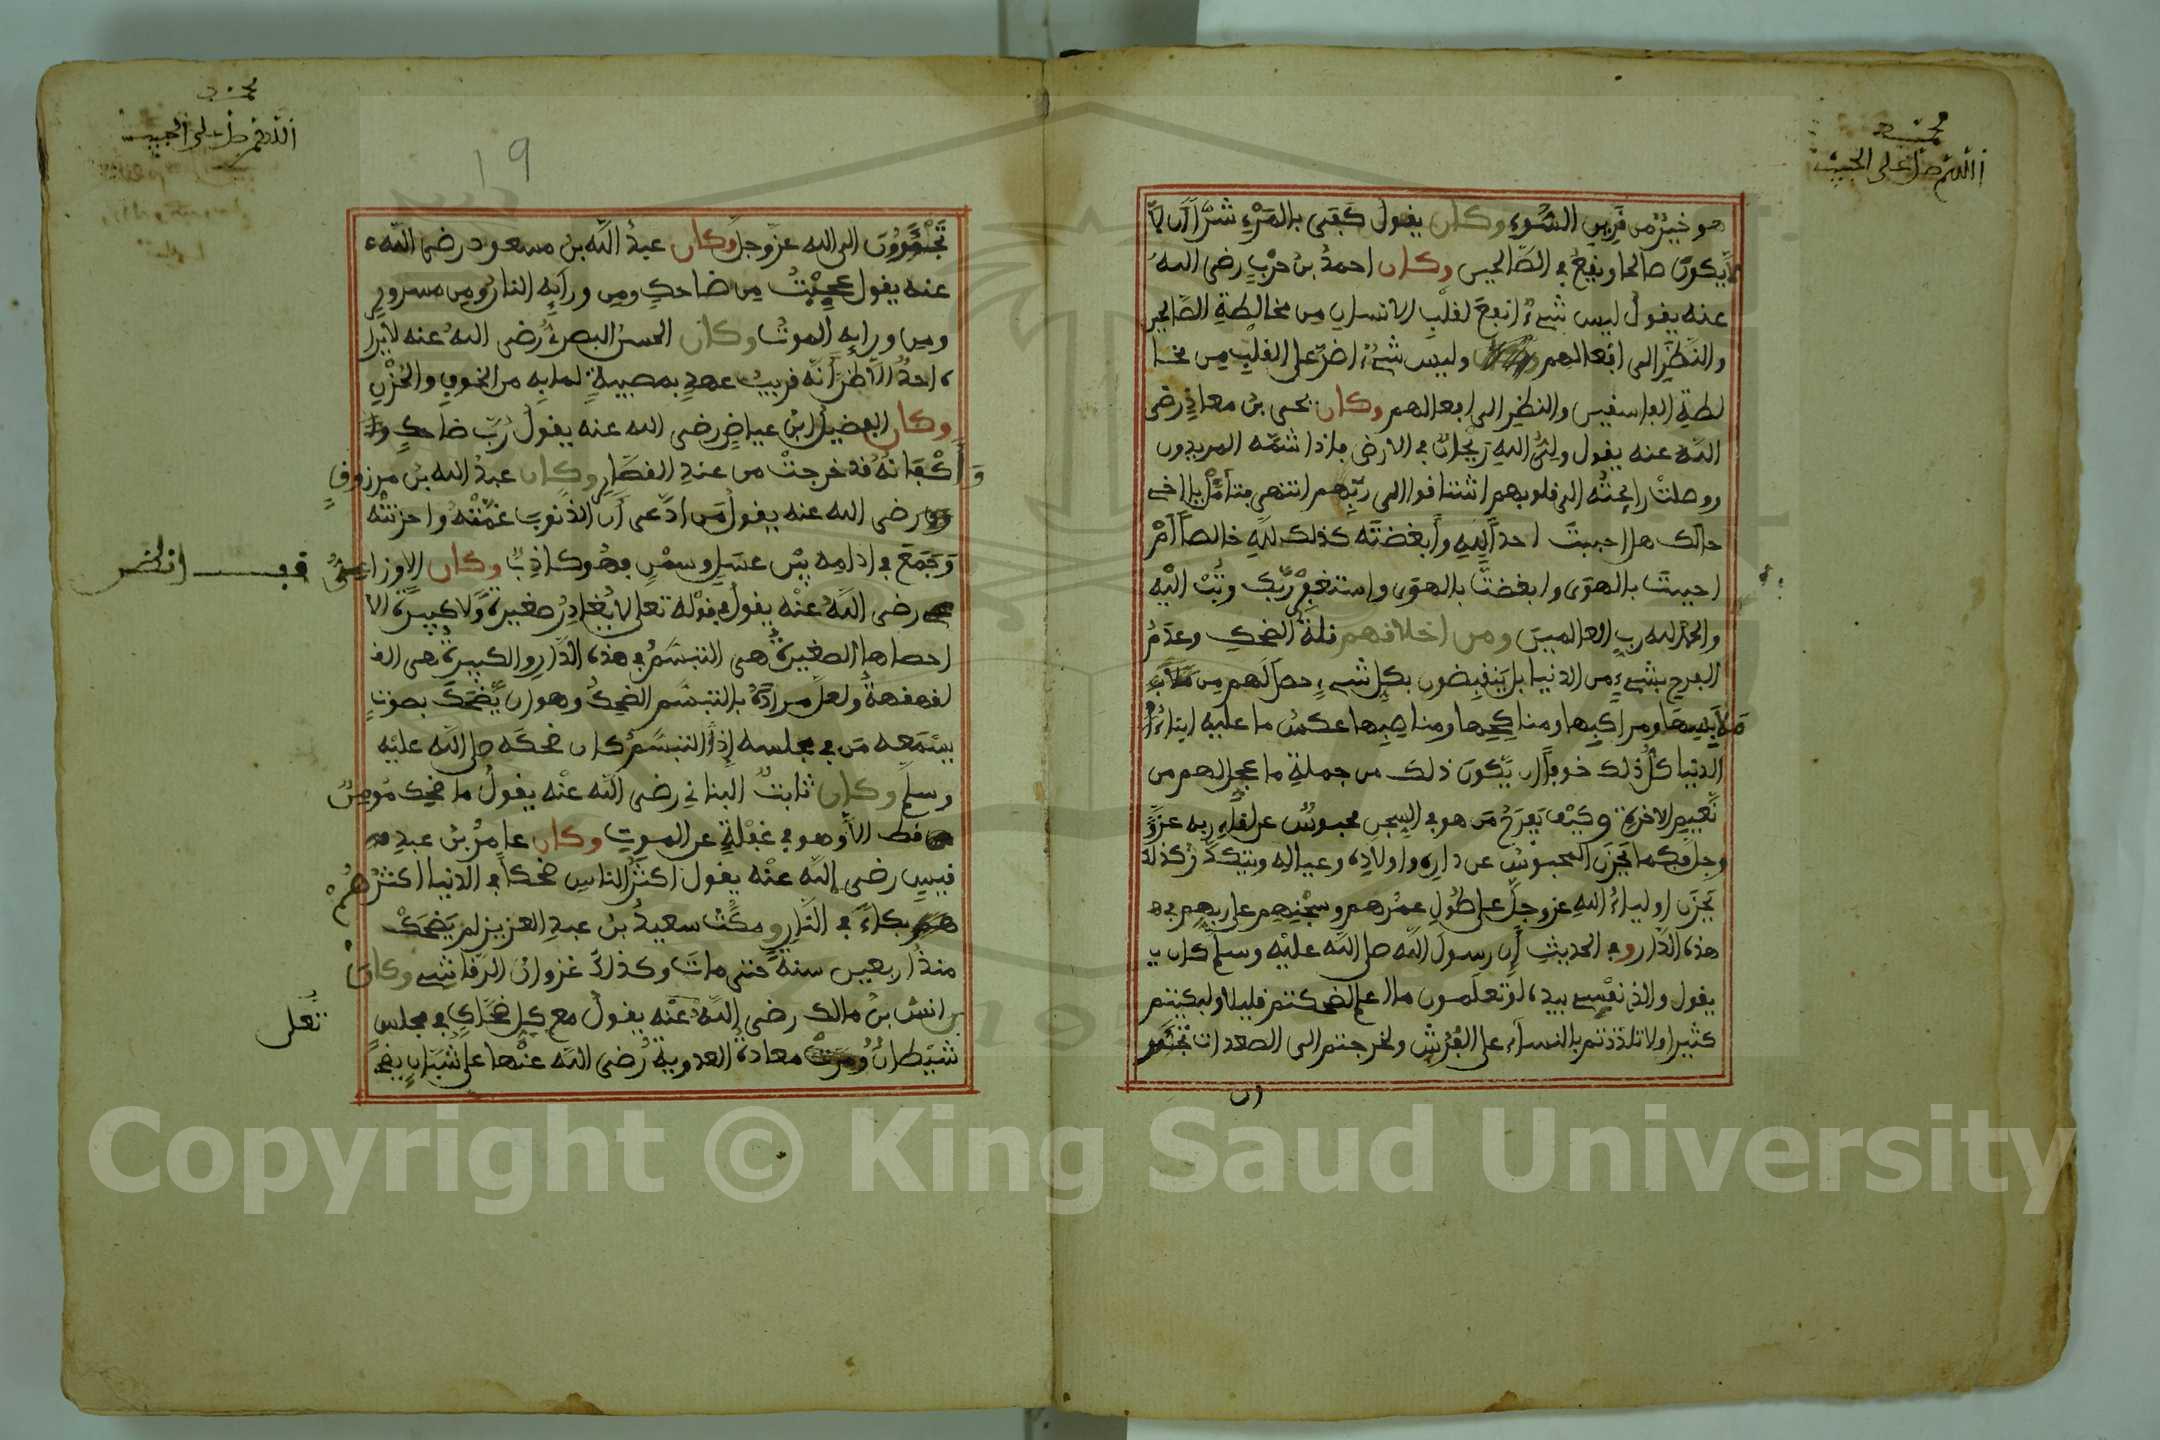 محمد
اللهم صل على الحبيب
هو خير من قرين السوء وكان يقول كفى بالمرء شرا ان لا
لا يكون صالحا ويقع في الصالحين وكان احمد بن حرب رضي الله
عنه يقول ليس شيء انفع لقلب الانسان من مخالطة الصالحين
والنظر الى افعالهم وليس شيء اضر على القلب من مخا
لطة الفاسقين والنظر الى افعالهم وكان يحيى بن معاذ رضي
الله عنه يقول ولي الله ريحان في الارض فاذا شمه المريدون
ووصلت رائحته الى قلوبهم اشتاقوا الى ربهم انتهى فتأمل يا اخي
حالك هل احببت احدا لله وأبغضته كذلك لله خالصا أم
احببت بالهوى وابغضت بالهوى واستغفر ربك وتب اليه
والحمد لله رب العالمين ومن اخلاقهم قلة الضحك وعدم
الفرح بشيء من الدنيا بل ينقبضون بكل شيء حصل لهم من
ملابسها ومراكبها ومناكحها ومناصبها عكس ما عليه ابناء
الدنيا كل ذلك خوفا ان يكون ذلك من جملة ما عجل لهم من
نعيم الاخرة وكيف يفرح من هو في السجن محبوس عن لقاء ربه عز و
وجل فكما يحزن المحبوس عن داره واولاده وعياله ويتكدر كذلك
يحزن اولياء الله عز وجل على طول عمرهم وسجنهم على ربهم في ه
هذه الدار وفي الحديث أن رسول الله صلى الله عليه وسلم كان ي
يقول والذي نفسي بيده لو تعلمون ما اعلم لضحكتم قليلا ولبكيتم
كثيرا ولا تلذذتم بالنساء على الفرش ولخرجتم الى الصعدات تجئر
ون
محمد
اللهم صل على الحبيب
19
تجئرون الى الله عز وجل وكان عبد الله بن مسعود رضي الله ع
عنه يقول عجبت من ضاحك ومن ورايه النار ومن مسرور
ومن ورايه الموت وكان الحسن البصري رضي الله عنه لا يرا
ه احد الا ظن أنه قريب عهد بمصيبة لما به من الخوف والحزن
وكان الفضيل ابن عياض رضي الله عنه يقول رب ضاحك
وأكفانه قد خرجت من عند القصار وكان عبد الله بن مرزوق
رضي الله عنه يقول من ادعى أن الذنوب غمته واحزنته
وجمع في ادامه بين عسل وسمن فهو كاذب وكان الاوزاعي
قف انظر
رضي الله عنه يقول في قوله تعلى لا يغادر صغيرة ولا كبيرة الا
احصاها الصغيرة هي التبسم في هذه الدار والكبيرة هي الق
لقهقهة ولعل مراده بالتبسم الضحك وهو ان يضحك بصوت
يستمعه من في مجلسه إذ التبسم كان ضحكه صلى الله عليه
وسلم وكان ثابت البناني رضي الله عنه يقول ما ضحك مومن
قط الا وهو في غفلة عن الموت وكان عامر بن عبد
قيس رضي الله عنه يقول اكثر الناس ضحكا في الدنيا اكثرهم
بكاء في النار ومكث سعيد بن عبد العزيز لم يضحك
منذ اربعين سنة حتى مات وكذلك غزوان الرقاشي وكان
بن انس بن مالك رضي الله عنه يقول مع كل ضحاك في مجلس
تعلى
شيطان ومرت معاذة العدوية رضي الله عنها على شباب يضح
Copyright © King Saud University